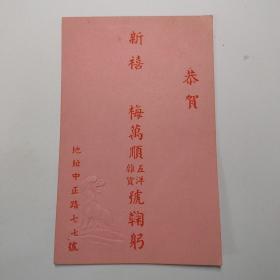 恭賀
新禧
梅萬順五洋雜貨號鞠躬
地址中正路七七號